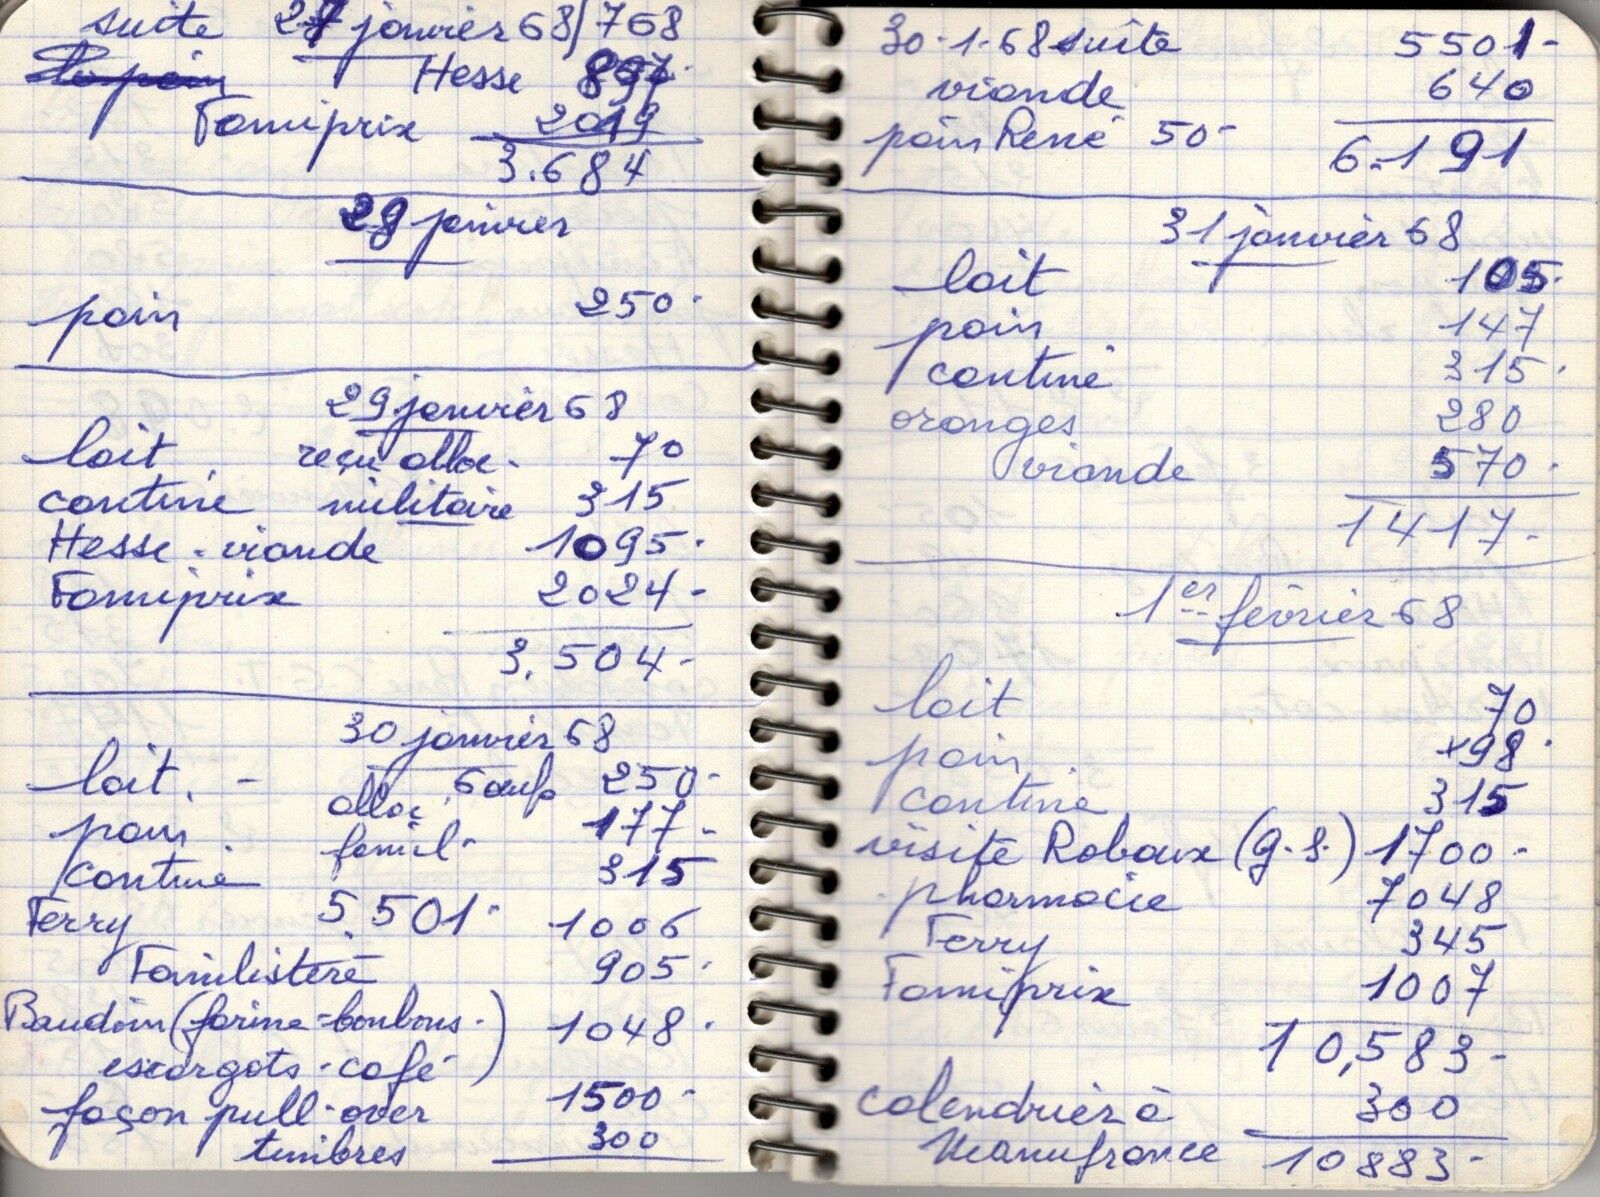 suite 27 janvier 68/768
Hesse 897.
Famiprix 2019
3.684
28 janvier
pain 250.
29 janvier 68
lait. reçu alloc. 70
cantine militaire 315
Hesse - viande 1095.
Famiprix 2024-
3.504-
30 janvier 68
lait. - 6 œufs 250-
pain alloc. 177-
cantine famil. 315
Ferry 5.501- 1006
Familistère 905.
Baudoin (farine-bonbons. 1048.
escargots-café)
façon pull-over 1500-
timbres 300
30-1-68 suite 5501-
viande 640
pain René 50- 6.191
31 janvier 68
lait 105.
pain 147
cantine 315.
oranges 280
viande 570.
1417-
1er février 68
lait 70
pain 98.
cantine 315
visite Robaux (g.s.) 1700-
pharmacie 7048
Ferry 345
Famiprix 1007
10,583-
calendrier à 300
Manufrance 10883-